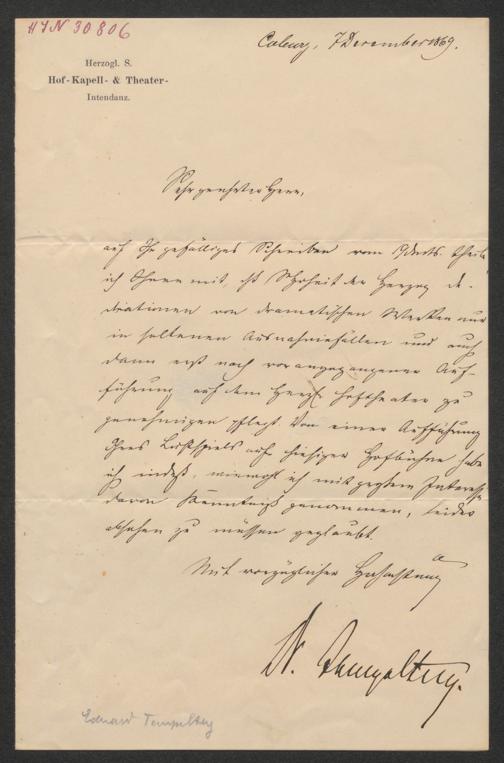 HIN 30806
Coburg, 7 December 1869.
Herzogl. S.
Hof-Kapell- & Theater-
Intendanz.
Sehr geehrter Herr,
auf Ihr gefälliges Schreiben vom theile
ich Ihnen mit, daß Hoheit der Herzog De-
dicationen von dramatischen Werken nur
in seltenen Ausnahmefällen und auch
dann erst nach vorangegangener Auf-
führung auf dem Herzogl. Hoftheater zu
genehmigen pflegt. Von einer Aufführung
Ihres Lustspiels auf hiesiger Hofbühne habe
ich indeß, wiewohl ich mit großem Interesse
davon Kenntniß genommen, leider
absehen zu müssen geglaubt.
Mit vorzüglicher Hochachtung
Dr. Tempeltey.
Eduard Tempeltey